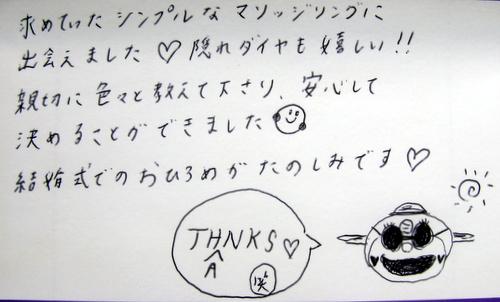 求めていたシンプルなマリッジリングに
出会えました♡隠れダイヤも嬉しい!!
親切に色々と教えて下さり、安心して
決めることができました
結婚式でのおひろめがたのしみです♡
THNKS♡
A
笑